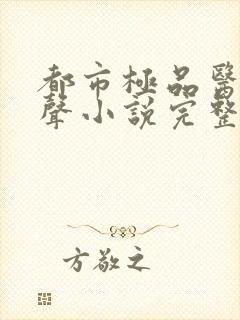 都市極品醫
聲小說完整
方敬之